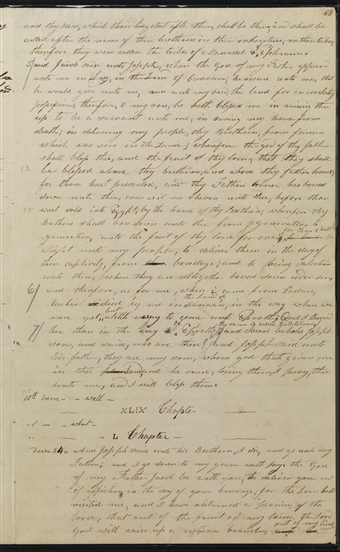 63
and thy issue, which thou begettest after them, shall be thine, and shall be
called after the name of their brethren in their inheritance, in the tribes;
therefore they were called the tribes of Manasseh & of Ephraim
and Jacob said unto Joseph, when the God of my Fathers appeared
unto me in Luz, in the land of Canaan; he sware unto me, that
he would give unto me, and unto my seed, the land for an everlasting
possession; therefore, O my son, he hath blessed me in raising thee
up to be a servant unto me, in saving my house from
death; in delivering my people, thy Brethren, from famine
which was sore in the Land; wherefore the god of thy fathers
shall bless thee, and the fruit of thy loins, that they shall
be blessed above thy brethren, and above thy father house;
for thou hast prevailed, and thy Fathers house has bowed
down unto thee, even as it was shown unto thee, before thou
was sold into Egypt, by the hands of thy Brothers; wherefore thy
brethren shall bow down unto thee from generation to
generation, unto the fruit of thy loins for ever for thou shalt be
a light unto my people, to deliver them in the days of
their captivity, from bondage; and to bring salvation
unto them, when they are altogether bowed down under sin
6/ and therefore, as for me, when I came from Padan,
Rachel died by me in the land of Canaan in the way when we
were yet but a little way to come unto Ephrath; and I buried
7/ her there in the way of Ephrath; the same is called Bethlehem; and Israel beheld Joseph's
sons, and said, who are these? and Joseph said unto
his father, they are my sons, whom god hath given me
in this and he said, bring them, I pray thee
unto me, and I will bless them
10th verse — — well —
XLIX Chapter
L Chapter
verse 24 and Joseph said unto his Brethren, I die, and go unto my
Fathers; and I go down to my grave with joy. The God
of my Father Jacob be with you, to deliver you out
of affliction in the days of your bondage, for the Lord hath
visited me, and I have obtained a promise of the
Lord, that out of the fruit of my loins, the Lord
God will raise up a righteous branch, out of my loins